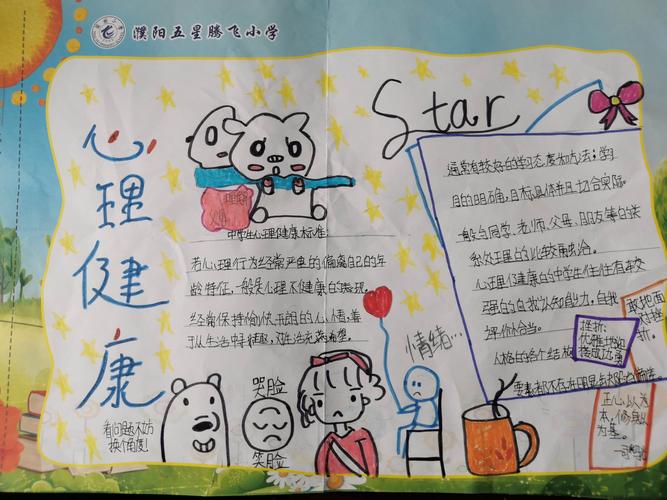 濮阳五星腾飞小学
心理健康
Star
中学生心理健康标准:
若心理行为经常严重的偏离自己的年
龄特征,一般是心理不健康的表现。
经常保持愉快、开朗的心情,善
于从生活中寻找乐趣,对生活充满希望。
通常有较好的学习态度和方法;学习
目的明确,目标具体并且切合实际。
一般与同学、老师、父母、朋友等的关
系处理的比较融洽。
心理健康的中学生往往有较
强的自我认知能力,自我
评价恰当。
人格的各个结构
要素都不存在明显
敢地面
对挫
折。
挫折:
优雅地如
正心以为
本,修身以
为基。
情绪...
哭脸
笑脸
看问题不妨
换个角度!